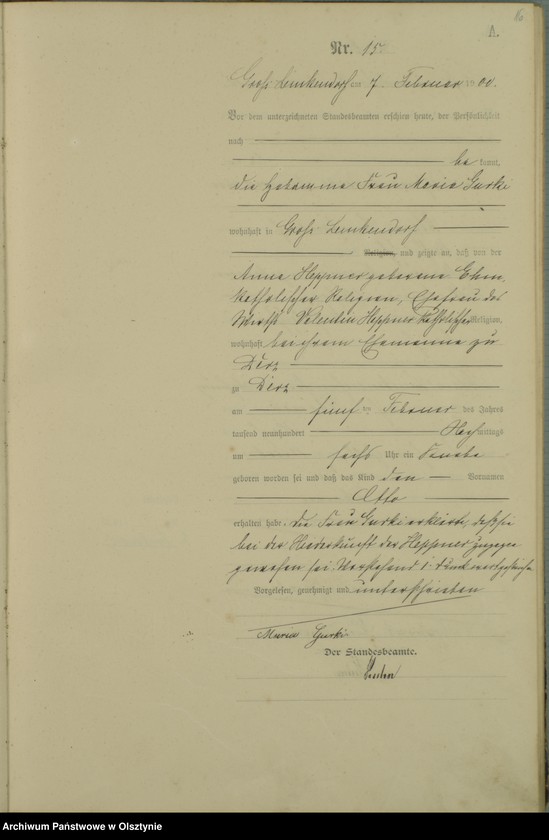 A.
Nr. 15
Groß Lemkendorf am 7. Februar 1900.
Vor dem unterzeichneten Standesbeamten erschien heute, der Persönlichkeit
nach
be kannt,
die Hebamme Frau Maria Gurki
wohnhaft in Groß Lemkendorf
Religion, und zeigte an, daß von der
Anna Heppner geborene Ehm,
katholischer Religion, Ehefrau des
Wirths Valentin Heppner katholischer Religion,
wohnhaft bei ihrem Ehemanne zu
Derz
zu Derz
am fünften Februar des Jahres
tausend neunhundert Nachmittags
um sechs Uhr ein Knabe
geboren worden sei und daß das Kind den Vornamen
Otto
erhalten habe. Die Frau Gurki erklärte, daß sie
bei der Niederkunft der Heppner zugegen
gewesen sei. Vorstehend 1 Druckwort gestrichen.
Vorgelesen, genehmigt und unterschrieben
Maria Gurki
Der Standesbeamte.
Archiwum Państwowe w Olsztynie